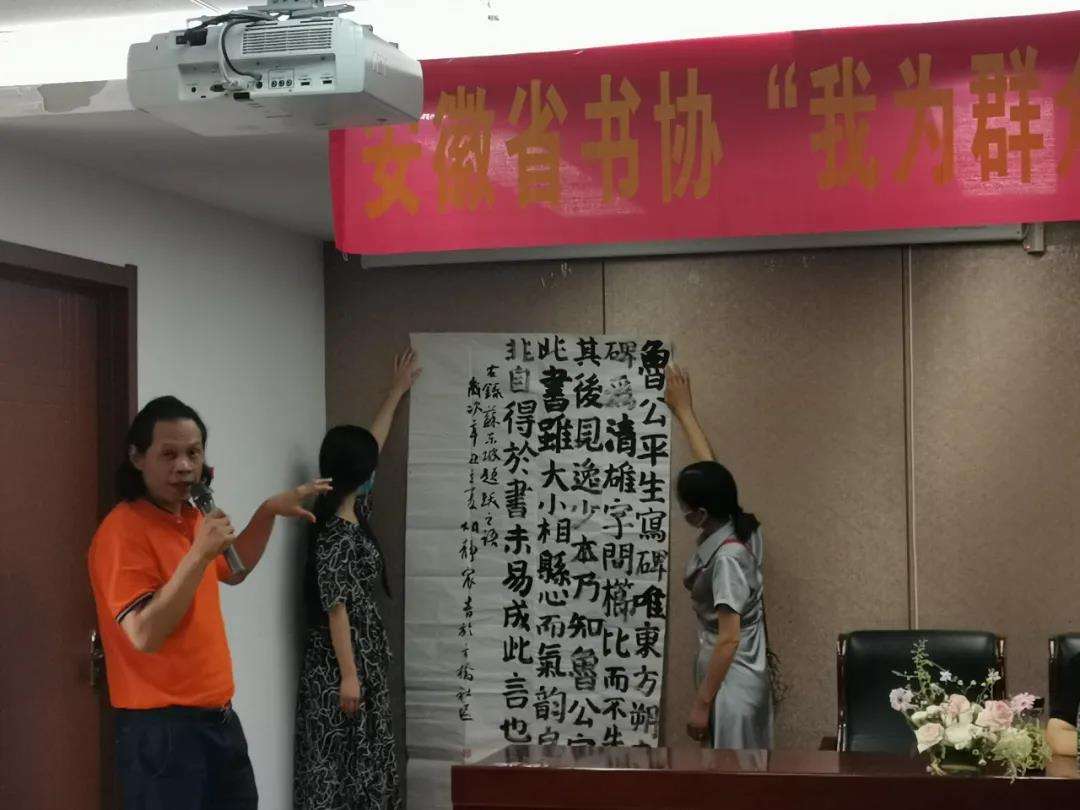 安徽省书协“我为群
魯公平生寫碑唯東方朔
碑爲清雄字間櫛比而不失
其後見逸少本乃知魯公字
此書雖大小相懸而氣韵
非自得於書未易成此言也
右錄蘇东坡題跋之語
歲次辛丑之夏 靜 書於 橋社区